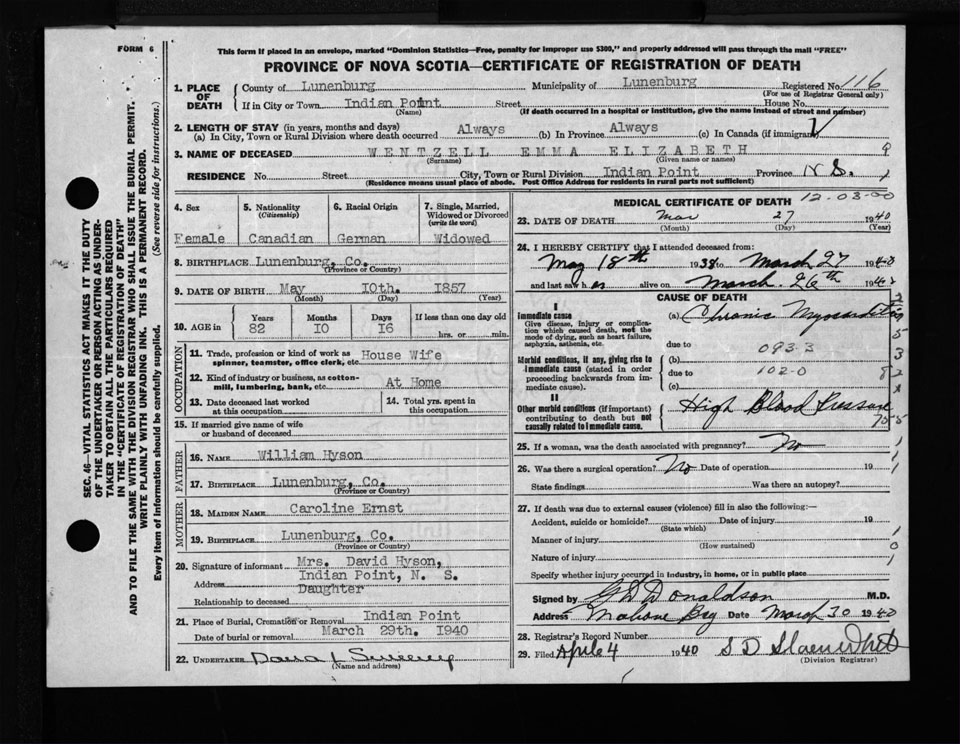 FORM 6
This form if placed in an envelope, marked "Dominion Statistics—Free, penalty for improper use $300," and properly addressed will pass through the mail "FREE"
PROVINCE OF NOVA SCOTIA—CERTIFICATE OF REGISTRATION OF DEATH
SEC. 46—VITAL STATISTICS ACT MAKES IT THE DUTY
OF THE UNDERTAKER OR PERSON ACTING AS UNDER-
TAKER TO OBTAIN ALL THE PARTICULARS REQUIRED
IN THE "CERTIFICATE OF REGISTRATION OF DEATH"
AND TO FILE THE SAME WITH THE DIVISION REGISTRAR WHO SHALL ISSUE THE BURIAL PERMIT.
WRITE PLAINLY WITH UNFADING INK. THIS IS A PERMANENT RECORD.
Every item of information should be carefully supplied. (See reverse side for instructions.)
1. PLACE OF DEATH
County of Lunenburg Municipality of Lunenburg Registered No. 116
(For use of Registrar General only)
If in City or Town Indian Point Street House No.
(Name) (If death occurred in a hospital or institution, give the name instead of street and number)
2. LENGTH OF STAY (in years, months and days)
(a) In City, Town or Rural Division where death occurred Always (b) In Province Always (c) In Canada (if immigrant)
3. NAME OF DECEASED WENTZELL EMMA ELIZABETH
(Surname) (Given name or names)
RESIDENCE No. Street City, Town or Rural Division Indian Point Province N S.
(Residence means usual place of abode. Post Office Address for residents in rural parts not sufficient)
4. Sex 5. Nationality (Citizenship) 6. Racial Origin 7. Single, Married, Widowed or Divorced (write the word)
Female Canadian German Widowed
8. BIRTHPLACE Lunenburg, Co.
(Province or Country)
9. DATE OF BIRTH May 10th. 1857
(Month) (Day) (Year)
10. AGE in Years Months Days If less than one day old
82 10 16 hrs. or min.
OCCUPATION
11. Trade, profession or kind of work as spinner, teamster, office clerk, etc. House Wife
12. Kind of industry or business, as cotton-mill, lumbering, bank, etc. At Home
13. Date deceased last worked at this occupation
14. Total yrs. spent in this occupation
15. If married give name of wife or husband of deceased
FATHER
16. NAME William Hyson
17. BIRTHPLACE Lunenburg, Co.
(Province or Country)
MOTHER
18. MAIDEN NAME Caroline Ernst
19. BIRTHPLACE Lunenburg, Co.
(Province or Country)
20. Signature of informant Mrs. David Hyson,
Address Indian Point, N. S.
Relationship to deceased Daughter
21. Place of Burial, Cremation or Removal Indian Point
Date of burial or removal March 29th. 1940
22. UNDERTAKER
(Name and address)
MEDICAL CERTIFICATE OF DEATH 12-03-00
23. DATE OF DEATH Mar 27 1940
(Month) (Day) (Year)
24. I HEREBY CERTIFY that I attended deceased from:
May 18th 1938 to March 27 1940
and last saw h er alive on March 26th 1940
CAUSE OF DEATH
I
Immediate cause (a) Chronic Myocarditis
Give disease, injury or complica-
tion which caused death, not the
mode of dying, such as heart failure,
asphyxia, asthenia, etc.
due to 093.3
Morbid conditions, if any, giving rise to (b)
immediate cause (stated in order due to 102-0
proceeding backwards from im-
mediate cause). (c)
II
Other morbid conditions (if important) High Blood Pressure
contributing to death but not
causally related to immediate cause.
25. If a woman, was the death associated with pregnancy? No
26. Was there a surgical operation? No Date of operation 19
State findings Was there an autopsy?
27. If death was due to external causes (violence) fill in also the following:—
Accident, suicide or homicide? Date of injury 19
(State which)
Manner of injury
(How sustained)
Nature of injury
Specify whether injury occurred in industry, in home, or in public place
Signed by Donaldson M.D.
Address Mahone Bay Date March 30 1940
28. Registrar's Record Number
29. Filed April 4 1940 S D
(Division Registrar)